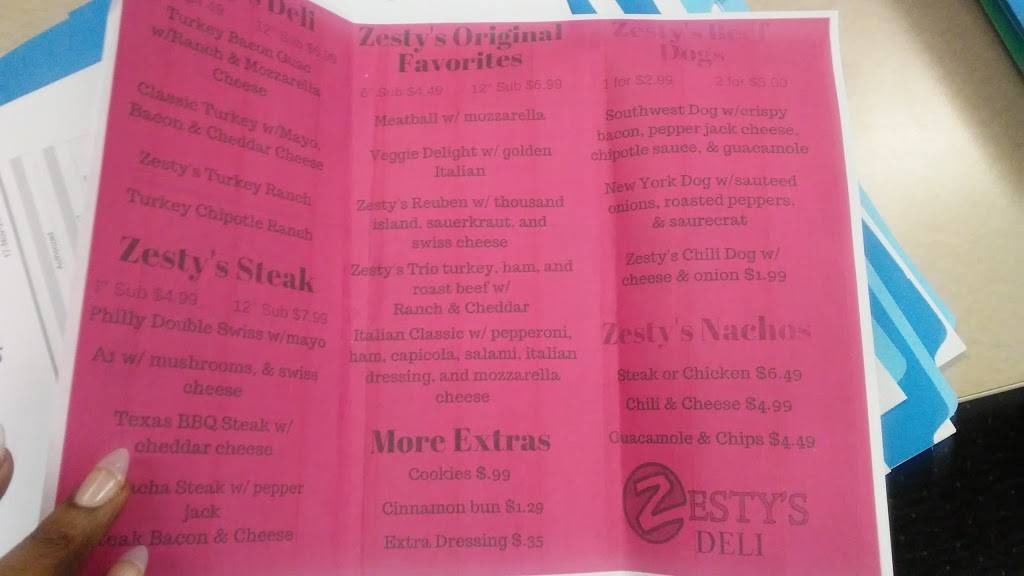 Deli
.49 12" Sub $6.99
Turkey Bacon Guac
w/Ranch & Mozzarella
Cheese
Classic Turkey w/Mayo,
Bacon & Cheddar Cheese
Zesty's Turkey Ranch
Turkey Chipotle Ranch
Zesty's Steak
Sub $4.99 12" Sub $7.99
Philly Double Swiss w/mayo
A1 w/ mushrooms, & swiss
cheese
Texas BBQ Steak w/
cheddar cheese
Steak w/ pepper
jack
Bacon & Cheese
Zesty's Original
Favorites
6" Sub $4.49 12" Sub $6.99
Meatball w/ mozzarella
Veggie Delight w/ golden
Italian
Zesty's Reuben w/ thousand
island, sauerkraut, and
swiss cheese
Zesty's Trio turkey, ham, and
roast beef w/
Ranch & Cheddar
Italian Classic w/ pepperoni,
ham, capicola, salami, italian
dressing, and mozzarella
cheese
More Extras
Cookies $.99
Cinnamon bun $1.29
Extra Dressing $.35
Zesty's Beef
Dogs
1 for $2.99 2 for $5.00
Southwest Dog w/crispy
bacon, pepper jack cheese,
chipotle sauce, & guacamole
New York Dog w/sauteed
onions, roasted peppers,
& saurecrat
Zesty's Chili Dog w/
cheese & onion $1.99
Zesty's Nachos
Steak or Chicken $6.49
Chili & Cheese $4.99
Guacamole & Chips $4.49
ZESTY'S
DELI